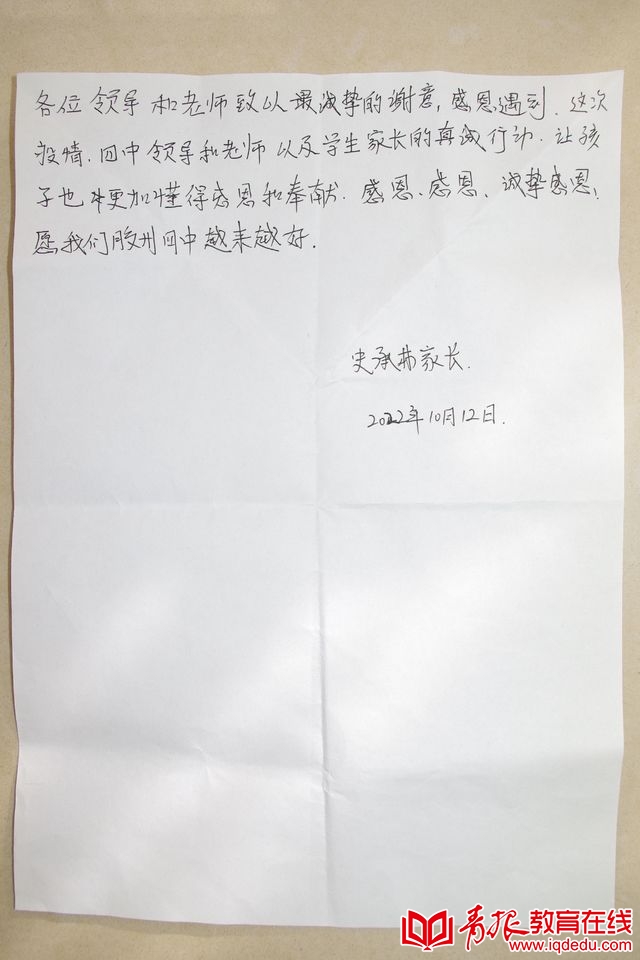 各位领导和老师致以最诚挚的谢意，感恩遇到.这次
疫情.四中领导和老师以及学生家长的真诚行动.让孩
子也更加懂得感恩和奉献.感恩、感恩、诚挚感恩，
愿我们胶州四中越来越好.
史承弗家长.
2022年10月12日.
青报教育在线
www.iqdedu.com